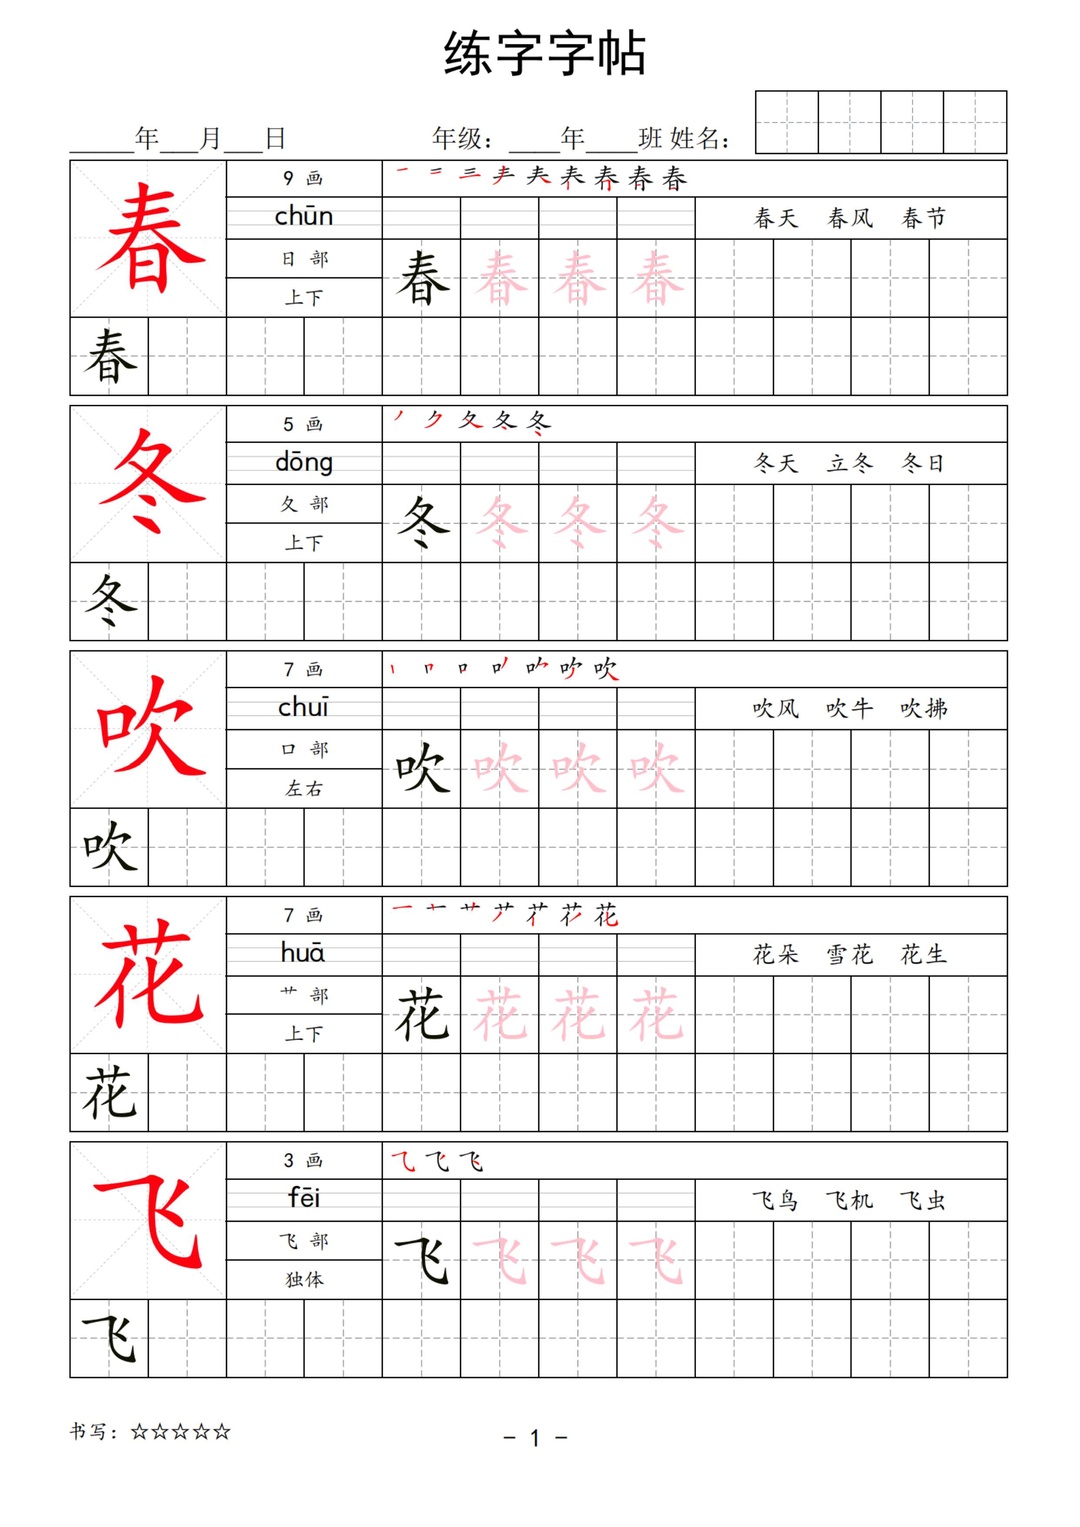 练字字帖
______年___月___日 年级：____年____班 姓名：
春 9 画
chūn 春天 春风 春节
日 部
上下 春 春 春 春
春
冬 5 画
dōng 冬天 立冬 冬日
夂 部
上下 冬 冬 冬 冬
冬
吹 7 画
chuī 吹风 吹牛 吹拂
口 部
左右 吹 吹 吹 吹
吹
花 7 画
huā 花朵 雪花 花生
艹 部
上下 花 花 花 花
花
飞 3 画
fēi 飞鸟 飞机 飞虫
飞 部
独体 飞 飞 飞 飞
飞
书写：☆☆☆☆☆
- 1 -